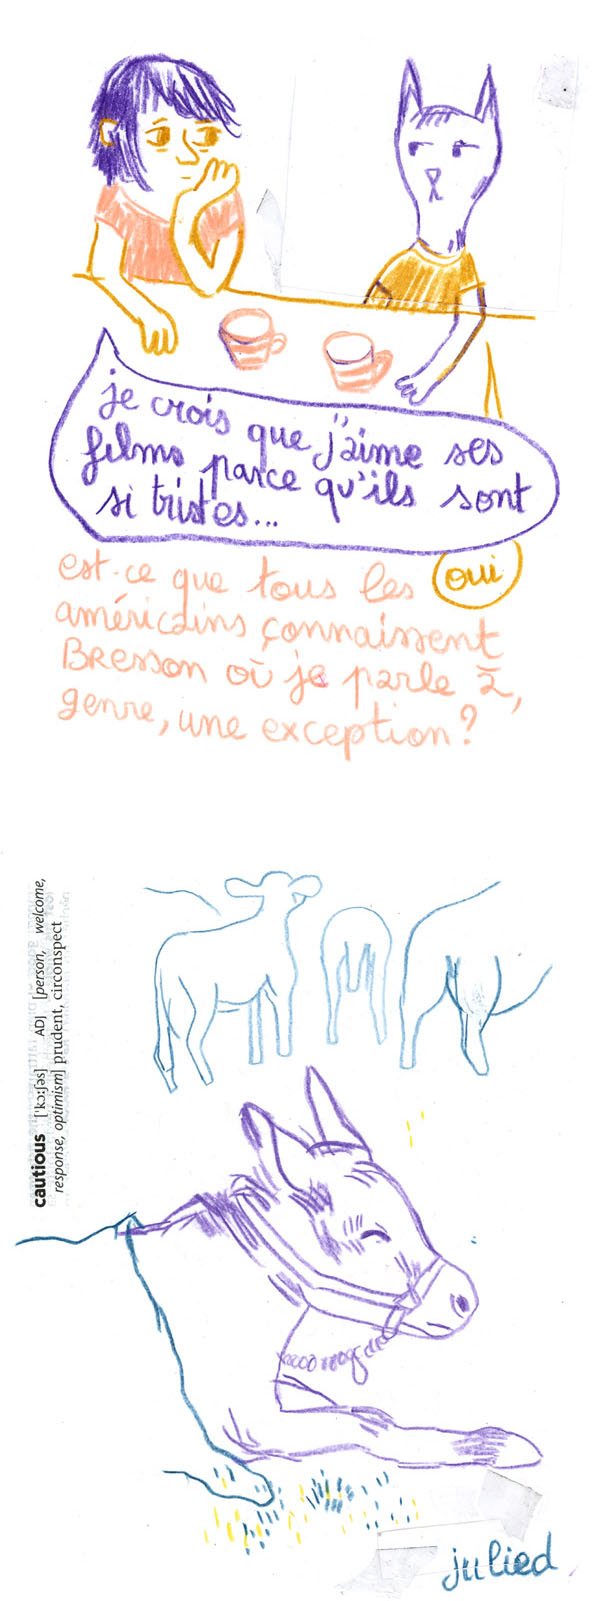 je crois que j'aime ses
films parce qu'ils sont
si tristes...
oui
est-ce que tous les
américains connaissent
Bresson où je parle à,
genre, une exception?
cautious ['kɔːʃəs] ADJ [person, welcome,
response, optimism] prudent, circonspect
julied